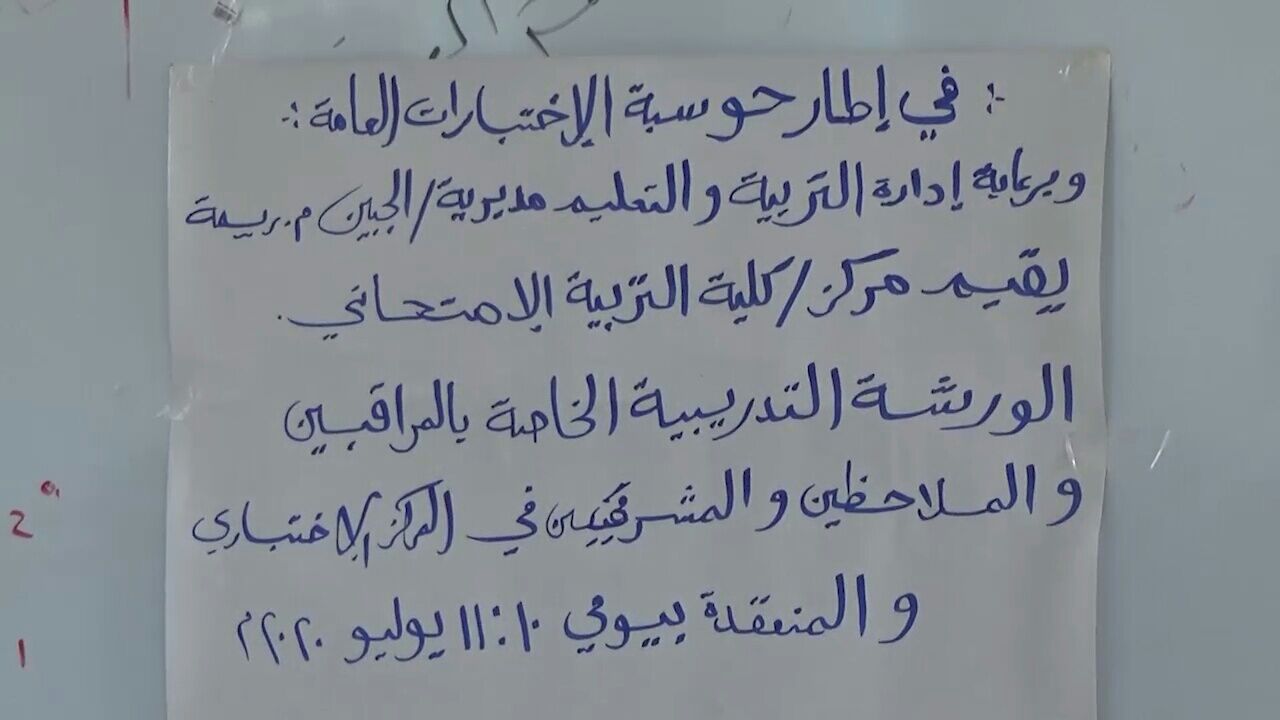 :- في إطار حوسبة الإختبارات العامة :-
وبرعاية إدارة التربية والتعليم مديرية/الجبين م.ريمة
يقيم مركز/كلية التربية الامتحاني.
الورشة التدريبية الخاصة بالمراقبين
والملاحظين والمشرفيين في المركز الاختباري
والمنعقدة بيومي ١٠:١١ يوليو ٢٠٢٠م
2
1